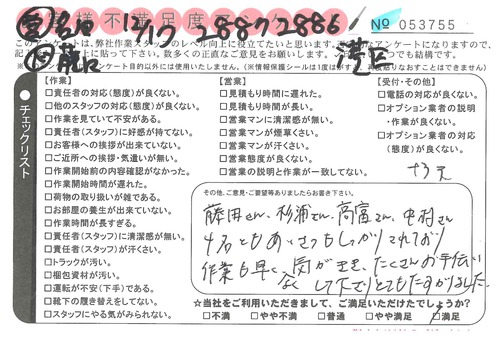 お客様不満足度アンケート
12/17 28872886
No 053755
港区
このアンケートは、弊社作業スタッフのレベル向上に役立てたいと思います。
※アンケート目的以外には使用いたしません。(※情報保護シールは1度はがすと再度貼りなおすことはできません)
チェックリスト
【作業】
□責任者の対応(態度)が良くない。
□他のスタッフの対応(態度)が良くない。
□作業を見ていて不安がある。
□責任者(スタッフ)に好感が持てない。
□お客様への挨拶が出来ていない。
□ご近所への挨拶・気遣いが無い。
□作業開始前の内容確認がなかった。
□作業開始時間が遅れた。
□荷物の取り扱いが雑である。
□お部屋の養生が出来ていない。
□作業時間が長すぎる。
□責任者(スタッフ)に清潔感が無い。
□責任者(スタッフ)が汗くさい。
□トラックが汚い。
□梱包資材が汚い。
□運転が不安(下手)である。
□靴下の履き替えをしてない。
□スタッフにやる気がみられない。
【営業】
□見積もり時間に遅れた。
□見積もり時間が長い。
□営業マンに清潔感が無い。
□営業マンが煙草くさい。
□営業マンが汗くさい。
□営業態度が良くない。
□営業の説明と作業が一致してない。
【受付・その他】
□電話の対応が良くない。
□オプション業者の説明
・作業が良くない。
□オプション業者の対応
(態度)が良くない。
その他、ご意見・ご要望等ありましたらお書き下さい。
藤田さん、杉浦さん、高富さん、中村さん
4名ともあいさつもしっかりされており
作業も早く、気がきき、たくさんお手伝い
して下さりとてもたすかりました。
☆当社をご利用いただきまして、ご満足いただけたでしょうか?
□不満 □やや不満 □普通 □やや満足 □満足